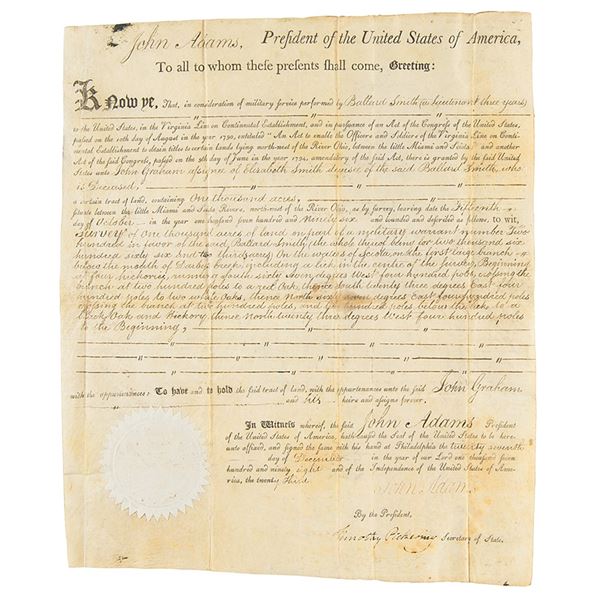 John Adams, Preſident of the United States of America,
To all to whom theſe preſents ſhall come, Greeting:
Know ye, That, in conſideration of military ſervice performed by Ballard Smith (a Lieutenant three years)
to the United States, in the Virginia Line on Continental Eſtabliſhment, and in purſuance of an Act of the Congreſs of the United States,
paſſed on the 10th day of August in the year 1790, entituled "An Act to enable the Officers and Soldiers of the Virginia Line on Conti-
nental Eſtabliſhment to obtain titles to certain lands lying north-weſt of the River Ohio, between the little Miami and Sciota;" and another
Act of the ſaid Congreſs, paſſed on the 9th day of June in the year 1794, amendatory of the ſaid Act, there is granted by the ſaid United
States unto John Graham aſsignee of Elizabeth Smith deviſee of the said Ballard Smith, who
is Deceased,
a certain tract of land, containing One thousand acres,
ſituate between the little Miami and Sciota Rivers, north-weſt of the River Ohio, as by ſurvey, bearing date the Fifteenth
day of October in the year one thouſand ſeven hundred and Ninety six and bounded and deſcribed as follows, to wit,
Survey of One thousand acres of land on part of a military warrant number Two
hundred in favor of the said Ballard Smith, the whole thereof being for two thousand six
hundred sixty six and two thirds acres. On the the first large branch
below the mouth of Darby creek, including a lick in the centre of the survey, Beginning
at four running south sixty seven degrees West four hundred poles, crossing the
branch at two hundred poles to a red Oak, thence south twenty three degrees East four
hundred poles to two white Oaks, thence North sixty seven degrees East four hundred poles
crossing the branch at two hundred poles, and hundred poles below the lick to a
Black Oak and Hickory, thence north twenty three degrees West four hundred poles
to the Beginning,
with the appurtenances: To have and to hold the ſaid tract of land, with the appurtenances unto the ſaid John Graham
and his heirs and aſſigns forever.
In Witneſs whereof, the ſaid John Adams Preſident
of the United States of America, hath cauſed the Seal of the United States to be here-
unto affixed, and signed the ſame with his hand at Philadelphia the twenty seventh
day of December in the year of our Lord one thouſand ſeven
hundred and ninety eight and of the Independence of the United States of Ame-
rica, the twenty third.
John Adams
By the Preſident,
Timothy Pickering Secretary of State.